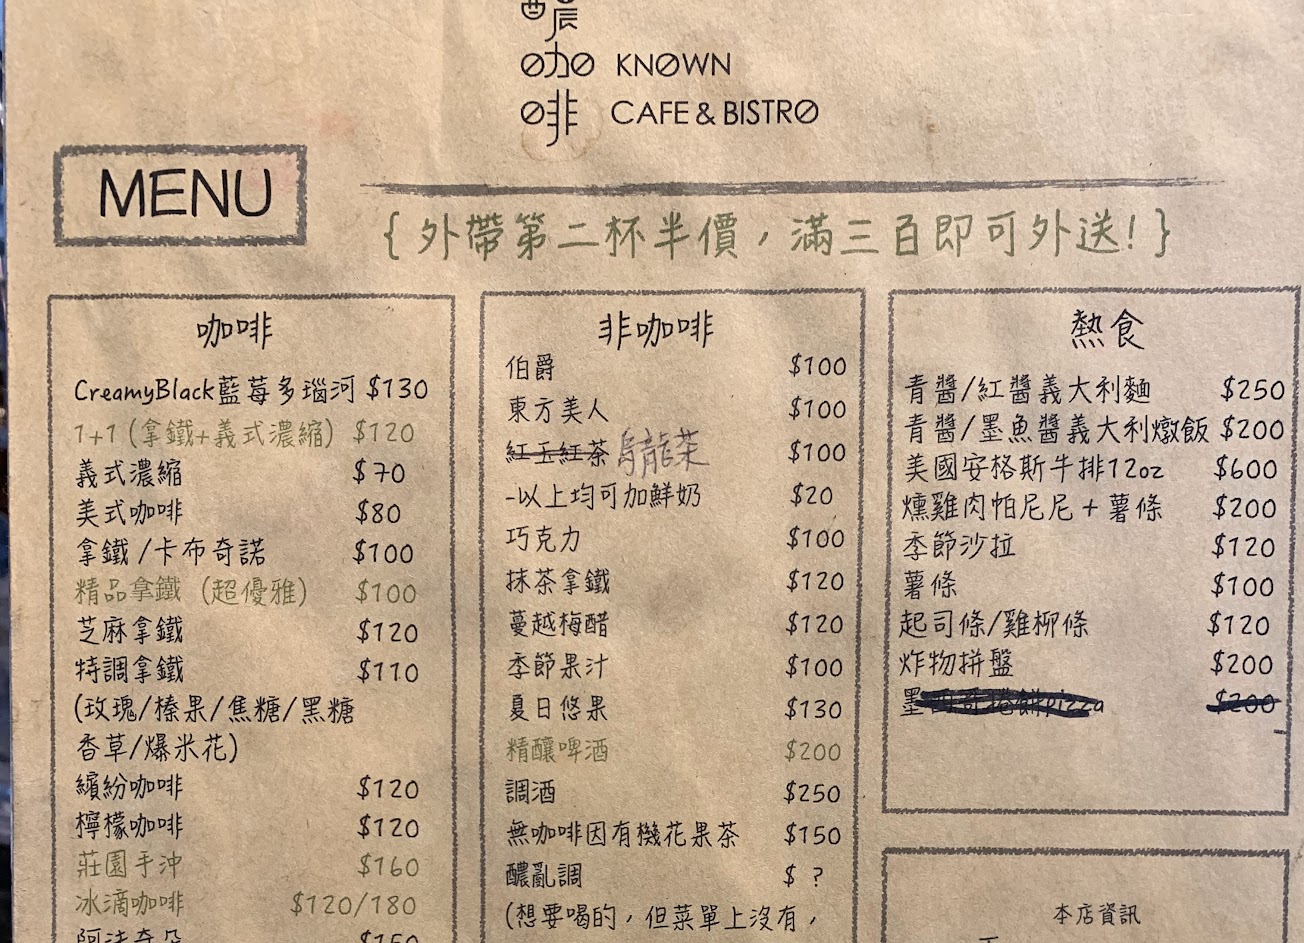 醲
咖 KNOWN
啡 CAFE & BISTRO
MENU
{外帶第二杯半價，滿三百即可外送!}
咖啡
CreamyBlack藍莓多瑙河 $130
1+1 (拿鐵+義式濃縮) $120
義式濃縮 $70
美式咖啡 $80
拿鐵/卡布奇諾 $100
精品拿鐵 (超優雅) $100
芝麻拿鐵 $120
特調拿鐵 $110
(玫瑰/榛果/焦糖/黑糖
香草/爆米花)
繽紛咖啡 $120
檸檬咖啡 $120
莊園手沖 $160
冰滴咖啡 $120/180
阿法奇朵 $150
非咖啡
伯爵 $100
東方美人 $100
紅玉紅茶 烏龍茶 $100
-以上均可加鮮奶 $20
巧克力 $100
抹茶拿鐵 $120
蔓越梅醋 $120
季節果汁 $100
夏日悠果 $130
精釀啤酒 $200
調酒 $250
無咖啡因有機花果茶 $150
醲亂調 $ ?
(想要喝的，但菜單上沒有，
熱食
青醬/紅醬義大利麵 $250
青醬/墨魚醬義大利燉飯 $200
美國安格斯牛排12oz $600
燻雞肉帕尼尼+薯條 $200
季節沙拉 $120
薯條 $100
起司條/雞柳條 $120
炸物拼盤 $200
墨西哥捲餅pizza $200
本店資訊